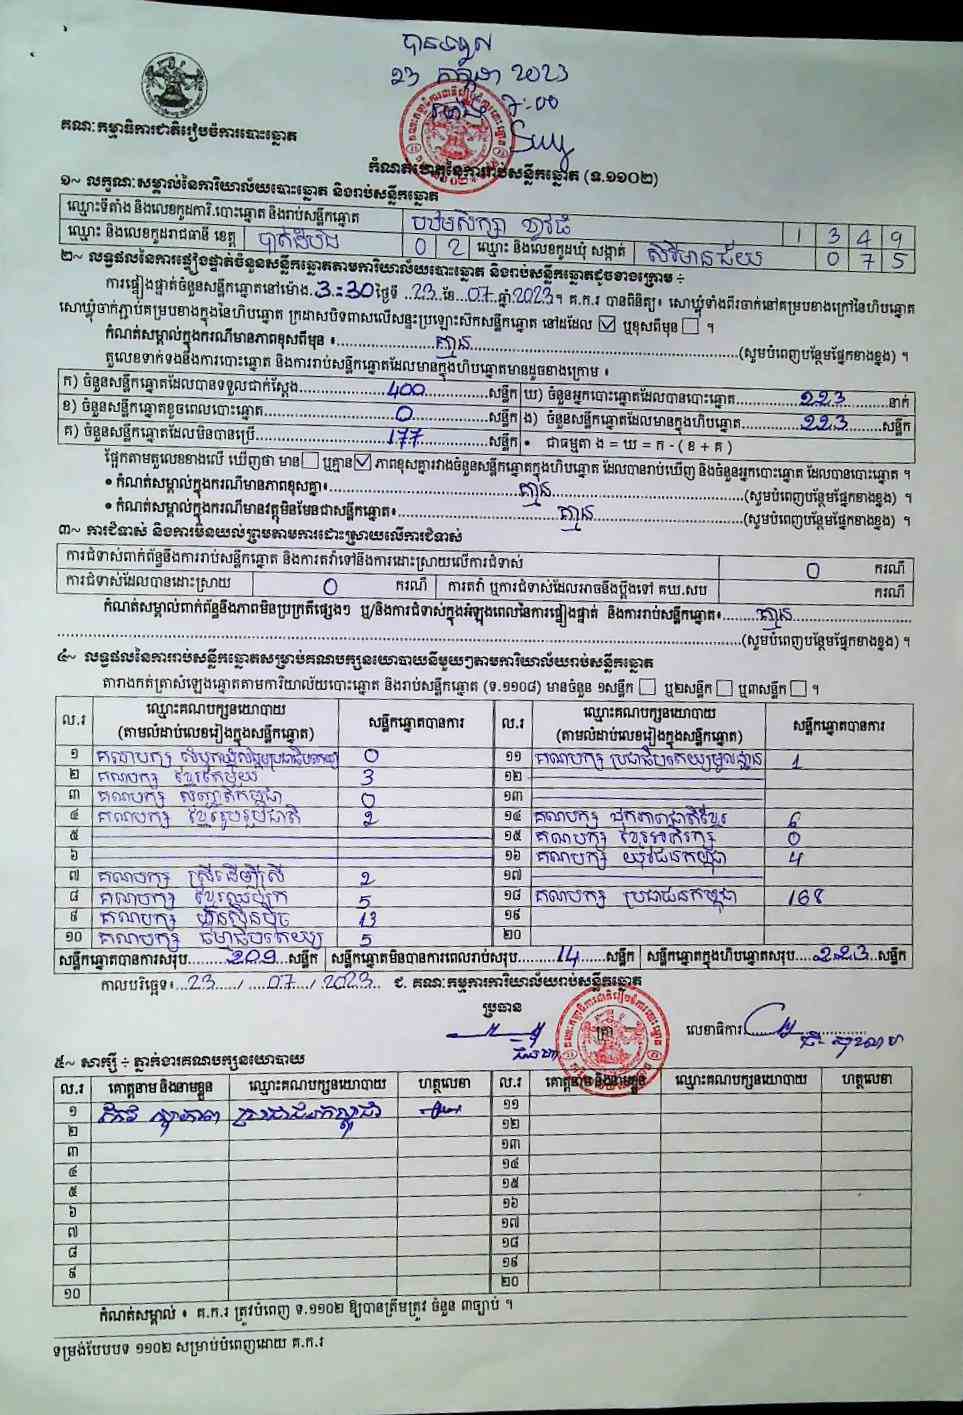 បានទទួល
23 កក្កដា 2023
គណៈកម្មាធិការជាតិរៀបចំការបោះឆ្នោត
កំណត់ហេតុនៃការរាប់សន្លឹកឆ្នោត (ទ.១១០២)
១~ លក្ខណៈសម្គាល់នៃការិយាល័យបោះឆ្នោត និងរាប់សន្លឹកឆ្នោត
ឈ្មោះទីតាំង និងលេខកូដការិ.បោះឆ្នោត និងរាប់សន្លឹកឆ្នោត 1 3 4 9
ឈ្មោះ និងលេខកូដរាជធានី ខេត្ត បាត់ដំបង 0 2 ឈ្មោះ និងលេខកូដឃុំ សង្កាត់ សិរីមានជ័យ 0 7 5
២~ លទ្ធផលនៃការផ្ទៀងផ្ទាត់ចំនួនសន្លឹកឆ្នោតតាមការិយាល័យបោះឆ្នោត និងរាប់សន្លឹកឆ្នោតដូចខាងក្រោម ÷
ការផ្ទៀងផ្ទាត់ចំនួនសន្លឹកឆ្នោតនៅម៉ោង 3:30 ថ្ងៃទី 23 ខែ 07 ឆ្នាំ 2023។ គ.ក.រ បានពិនិត្យ៖ សោឃ្លុំទាំងពីរចាក់នៅគម្របខាងក្រៅនៃហិបឆ្នោត
សោឃ្លុំចាក់ភ្ជាប់គម្របខាងក្នុងនៃហិបឆ្នោត ក្រដាសបិទពាសលើសន្ទះប្រឡោះស៊កសន្លឹកឆ្នោត នៅដដែល ☑ ឬខុសពីមុន ☐ ។
កំណត់សម្គាល់ក្នុងករណីមានភាពខុសពីមុន ៖ គ្មាន (សូមបំពេញបន្ថែមផ្នែកខាងខ្នង) ។
តួលេខទាក់ទងនឹងការបោះឆ្នោត និងការរាប់សន្លឹកឆ្នោតដែលមានក្នុងហិបឆ្នោតមានដូចខាងក្រោម ៖
ក) ចំនួនសន្លឹកឆ្នោតដែលបានទទួលជាក់ស្ដែង 400 សន្លឹក ឃ) ចំនួនអ្នកបោះឆ្នោតដែលបានបោះឆ្នោត 223 នាក់
ខ) ចំនួនសន្លឹកឆ្នោតខូចពេលបោះឆ្នោត 0 សន្លឹក ង) ចំនួនសន្លឹកឆ្នោតដែលមានក្នុងហិបឆ្នោត 223 សន្លឹក
គ) ចំនួនសន្លឹកឆ្នោតដែលមិនបានប្រើ 177 សន្លឹក • ជាធម្មតា ង = ឃ = ក - ( ខ + គ )
ផ្អែកតាមតួលេខខាងលើ ឃើញថា មាន ☐ ឬគ្មាន ☑ ភាពខុសគ្នារវាងចំនួនសន្លឹកឆ្នោតក្នុងហិបឆ្នោត ដែលបានរាប់ឃើញ និងចំនួនអ្នកបោះឆ្នោត ដែលបានបោះឆ្នោត ។
• កំណត់សម្គាល់ក្នុងករណីមានភាពខុសគ្នា៖ គ្មាន (សូមបំពេញបន្ថែមផ្នែកខាងខ្នង) ។
• កំណត់សម្គាល់ក្នុងករណីមានវត្ថុមិនមែនជាសន្លឹកឆ្នោត៖ គ្មាន (សូមបំពេញបន្ថែមផ្នែកខាងខ្នង) ។
៣~ ការជំទាស់ និងការមិនយល់ព្រមតាមការដោះស្រាយលើការជំទាស់
ការជំទាស់ពាក់ព័ន្ធនឹងការរាប់សន្លឹកឆ្នោត និងការតវ៉ាទៅនឹងការដោះស្រាយលើការជំទាស់ 0 ករណី
ការជំទាស់ដែលបានដោះស្រាយ 0 ករណី ការតវ៉ា ឬការជំទាស់ដែលអាចនឹងប្ដឹងទៅ គឃ.សប ករណី
កំណត់សម្គាល់ពាក់ព័ន្ធនឹងភាពមិនប្រក្រតីផ្សេងៗ ឬ/និងការជំទាស់ក្នុងអំឡុងពេលនៃការផ្ទៀងផ្ទាត់ និងការរាប់សន្លឹកឆ្នោត៖ គ្មាន
(សូមបំពេញបន្ថែមផ្នែកខាងខ្នង) ។
៤~ លទ្ធផលនៃការរាប់សន្លឹកឆ្នោតសម្រាប់គណបក្សនយោបាយនីមួយៗតាមការិយាល័យរាប់សន្លឹកឆ្នោត
តារាងកត់ត្រាសំឡេងឆ្នោតតាមការិយាល័យបោះឆ្នោត និងរាប់សន្លឹកឆ្នោត (ទ.១១០៨) មានចំនួន ១សន្លឹក ☐ ឬ២សន្លឹក ☐ ឬ៣សន្លឹក ☐ ។
ល.រ ឈ្មោះគណបក្សនយោបាយ (តាមលំដាប់លេខរៀងក្នុងសន្លឹកឆ្នោត) សន្លឹកឆ្នោតបានការ ល.រ ឈ្មោះគណបក្សនយោបាយ (តាមលំដាប់លេខរៀងក្នុងសន្លឹកឆ្នោត) សន្លឹកឆ្នោតបានការ
១ គណបក្ស សំបុកឃ្មុំសង្គមប្រជាធិបតេយ្យ 0 ១១ គណបក្ស ប្រជាធិបតេយ្យមូលដ្ឋាន 1
២ គណបក្ស ខ្មែរតែមួយ 3 ១២
៣ គណបក្ស សញ្ជាតិកម្ពុជា 0 ១៣
៤ គណបក្ស ខ្មែររួបរួមជាតិ 2 ១៤ គណបក្ស ឯកភាពជាតិខ្មែរ 6
៥ ១៥ គណបក្ស ខ្មែរអភិរក្ស 0
៦ ១៦ គណបក្ស យុវជនកម្ពុជា 4
៧ គណបក្ស ស្រីដើម្បីស្រី 2 ១៧
៨ គណបក្ស ខ្មែរឈប់ក្រ 5 ១៨ គណបក្ស ប្រជាជនកម្ពុជា 168
៩ គណបក្ស ហ៊្វុនស៊ិនប៉ិច 13 ១៩
១០ គណបក្ស ធម្មាធិបតេយ្យ 5 ២០
សន្លឹកឆ្នោតបានការសរុប 209 សន្លឹក សន្លឹកឆ្នោតមិនបានការពេលរាប់សរុប 14 សន្លឹក សន្លឹកឆ្នោតក្នុងហិបឆ្នោតសរុប 223 សន្លឹក
កាលបរិច្ឆេទ៖ 23 / 07 / 2023 ជ. គណៈកម្មការការិយាល័យរាប់សន្លឹកឆ្នោត
ប្រធាន ត្រា លេខាធិការ
៥~ សាក្សី ÷ ភ្នាក់ងារគណបក្សនយោបាយ
ល.រ គោត្តនាម និងនាមខ្លួន ឈ្មោះគណបក្សនយោបាយ ហត្ថលេខា ល.រ គោត្តនាម និងនាមខ្លួន ឈ្មោះគណបក្សនយោបាយ ហត្ថលេខា
១ ប្រជាជនកម្ពុជា ១១
២ ១២
៣ ១៣
៤ ១៤
៥ ១៥
៦ ១៦
៧ ១៧
៨ ១៨
៩ ១៩
១០ ២០
កំណត់សម្គាល់ ៖ គ.ក.រ ត្រូវបំពេញ ទ.១១០២ ឱ្យបានត្រឹមត្រូវ ចំនួន ៣ច្បាប់ ។
ទម្រង់បែបបទ ១១០២ សម្រាប់បំពេញដោយ គ.ក.រ